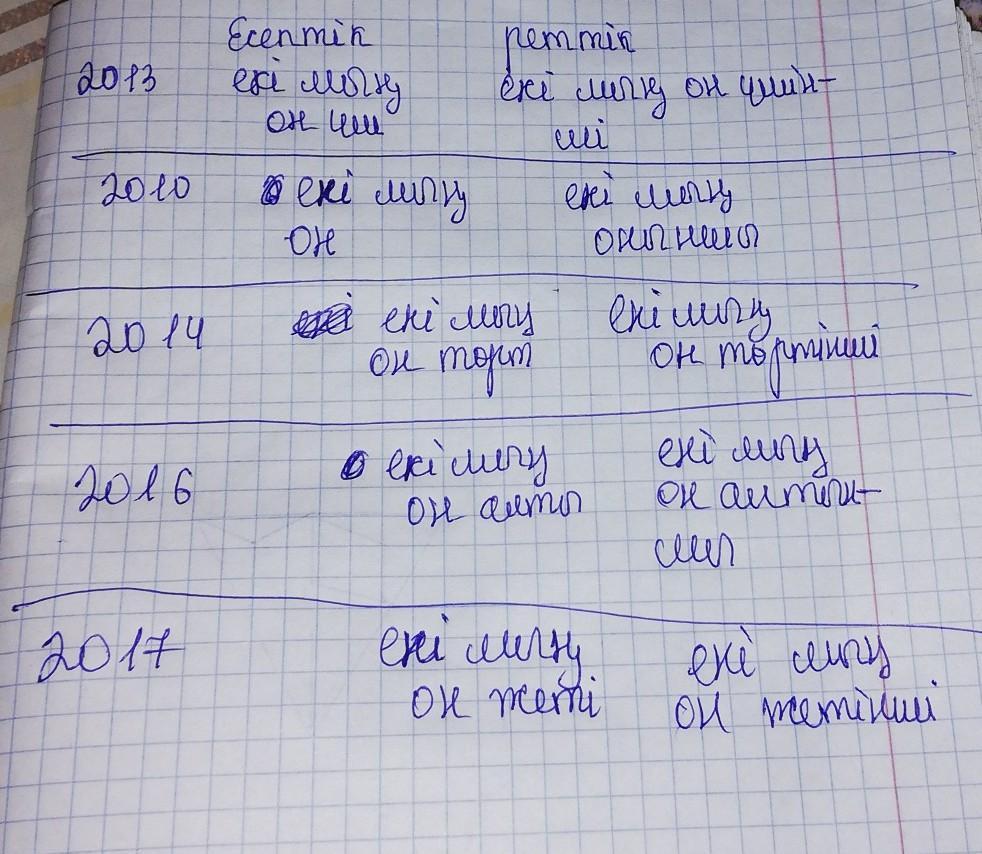 Есептік реттік
2013 екі мың екі мың он үшін-
он үш ші
2010 екі мың екі мың
он оныншы
2014 екі мың екі мың
он төрт он төртінші
2016 екі мың екі мың
он алты он алтын-
шы
2017 екі мың екі мың
он жеті он жетінші